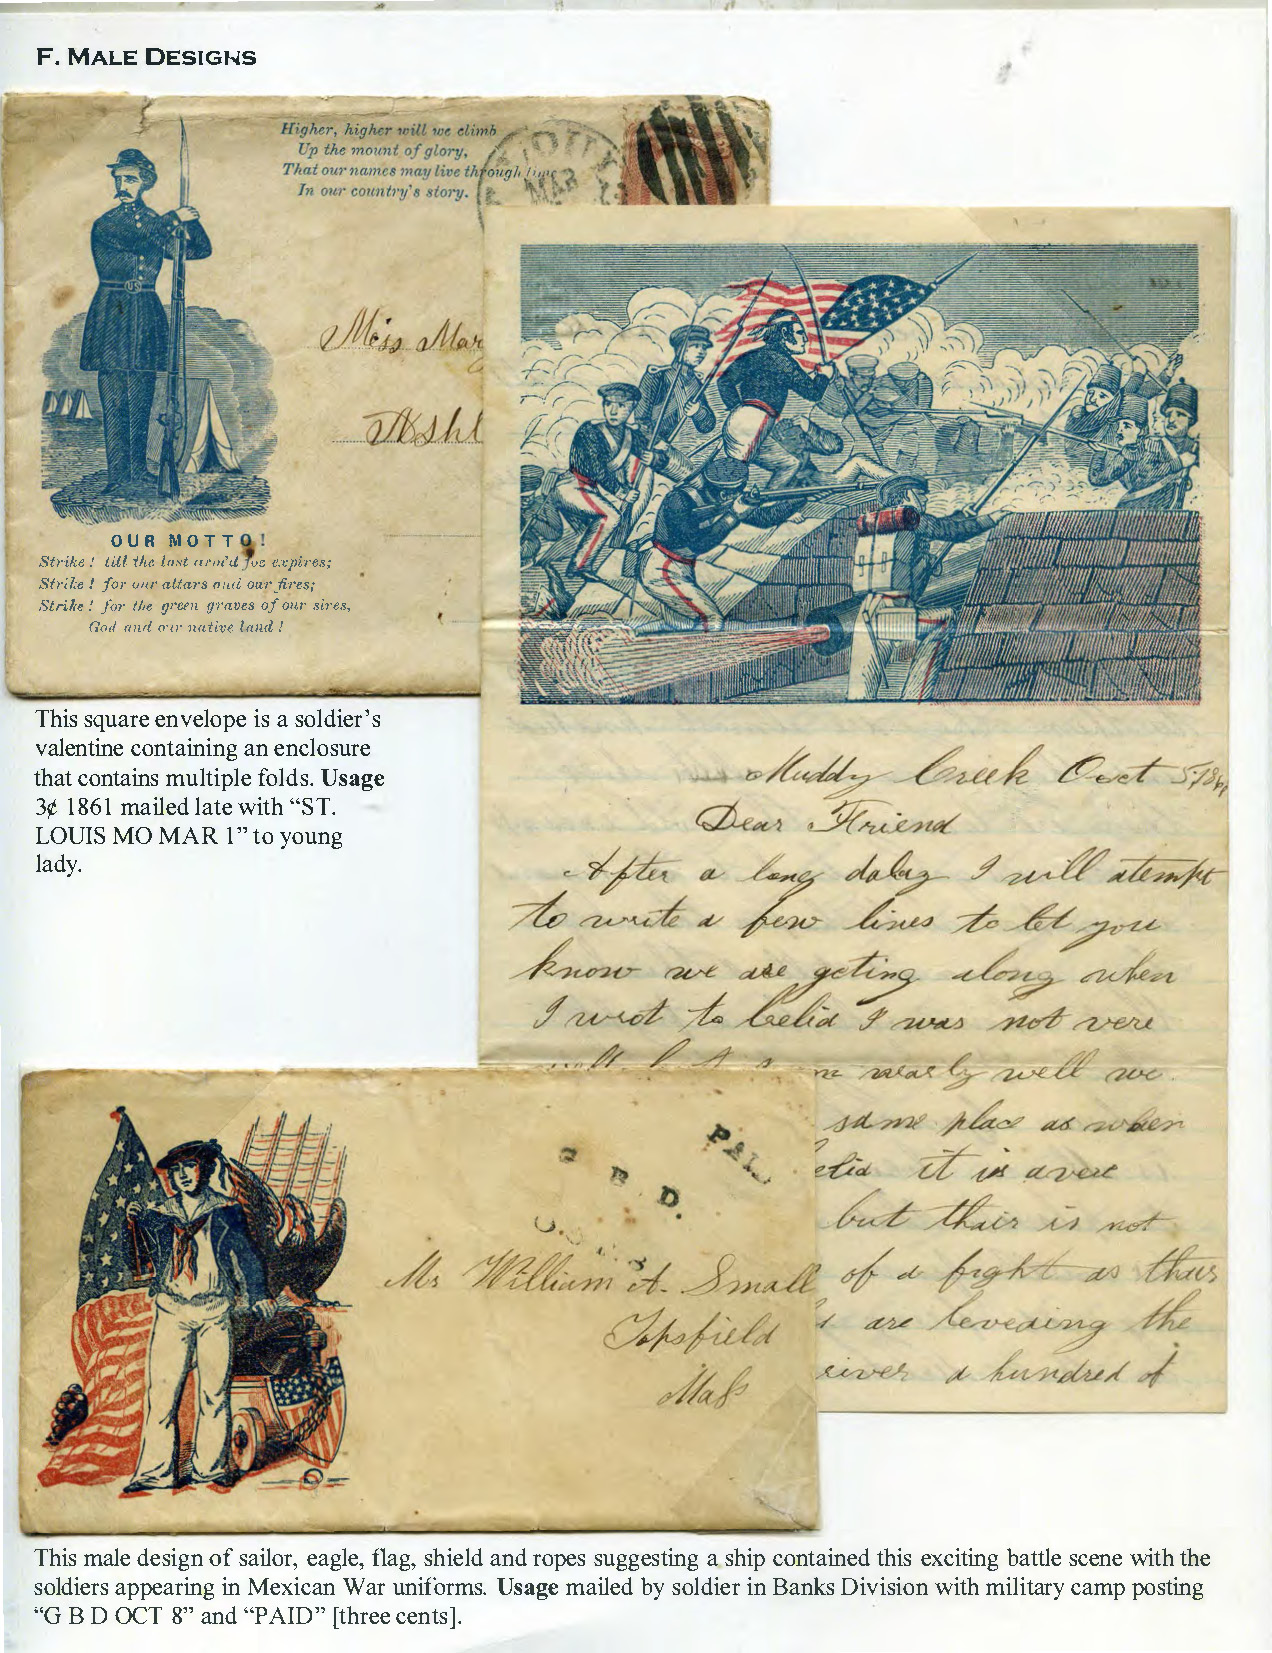 F. MALE DESIGNS
Higher, higher will we climb
Up the mount of glory,
That our names may live through time
In our country's story.
MAR
Miss Mar
Ashl
OUR MOTTO!
Strike! till the last arm'd foe expires;
Strike! for our altars and our fires;
Strike! for the green graves of our sires,
God and our native land!
This square envelope is a soldier's
valentine containing an enclosure
that contains multiple folds. Usage
3¢ 1861 mailed late with "ST.
LOUIS MO MAR 1" to young
lady.
Muddy Creek Oct 5, 1861
Dear Friend
After a long dalay I will atempt
to write a few lines to let you
know we are geting along when
I wrot to Celid I was not vere
nearly well we
same place as when
elid it is a vere
but thair is not
of a fight as thus
are leveaing the
river a hundred of
G B D.
PAID
Mr William A. Small
Topsfield
Mass
This male design of sailor, eagle, flag, shield and ropes suggesting a ship contained this exciting battle scene with the
soldiers appearing in Mexican War uniforms. Usage mailed by soldier in Banks Division with military camp posting
"G B D OCT 8" and "PAID" [three cents].